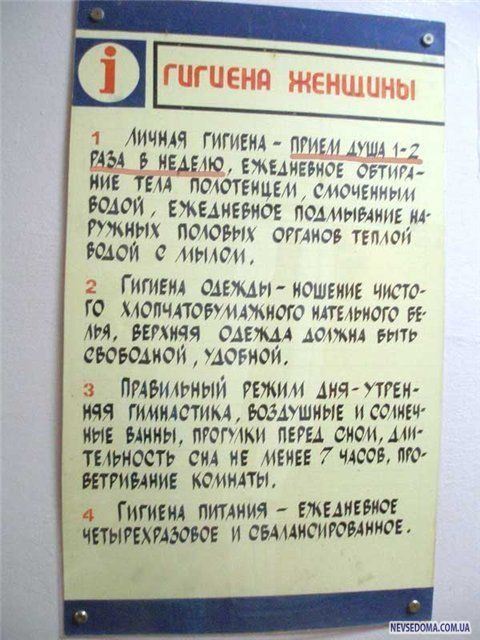 i
ГИГИЕНА ЖЕНЩИНЫ
1 ЛИЧНАЯ ГИГИЕНА - ПРИЕМ ДУША 1-2
РАЗА В НЕДЕЛЮ, ЕЖЕДНЕВНОЕ ОБТИРА-
НИЕ ТЕЛА ПОЛОТЕНЦЕМ, СМОЧЕННЫМ
ВОДОЙ, ЕЖЕДНЕВНОЕ ПОДМЫВАНИЕ НА-
РУЖНЫХ ПОЛОВЫХ ОРГАНОВ ТЕПЛОЙ
ВОДОЙ С МЫЛОМ.
2 ГИГИЕНА ОДЕЖДЫ - НОШЕНИЕ ЧИСТО-
ГО ХЛОПЧАТОБУМАЖНОГО НАТЕЛЬНОГО БЕ-
ЛЬЯ, ВЕРХНЯЯ ОДЕЖДА ДОЛЖНА БЫТЬ
СВОБОДНОЙ, УДОБНОЙ.
3 ПРАВИЛЬНЫЙ РЕЖИМ ДНЯ - УТРЕН-
НЯЯ ГИМНАСТИКА, ВОЗДУШНЫЕ И СОЛНЕЧ-
НЫЕ ВАННЫ, ПРОГУЛКИ ПЕРЕД СНОМ, ДЛИ-
ТЕЛЬНОСТЬ СНА НЕ МЕНЕЕ 7 ЧАСОВ, ПРО-
ВЕТРИВАНИЕ КОМНАТЫ.
4 ГИГИЕНА ПИТАНИЯ - ЕЖЕДНЕВНОЕ
ЧЕТЫРЕХРАЗОВОЕ И СБАЛАНСИРОВАННОЕ.
NEVSEDOMA.COM.UA